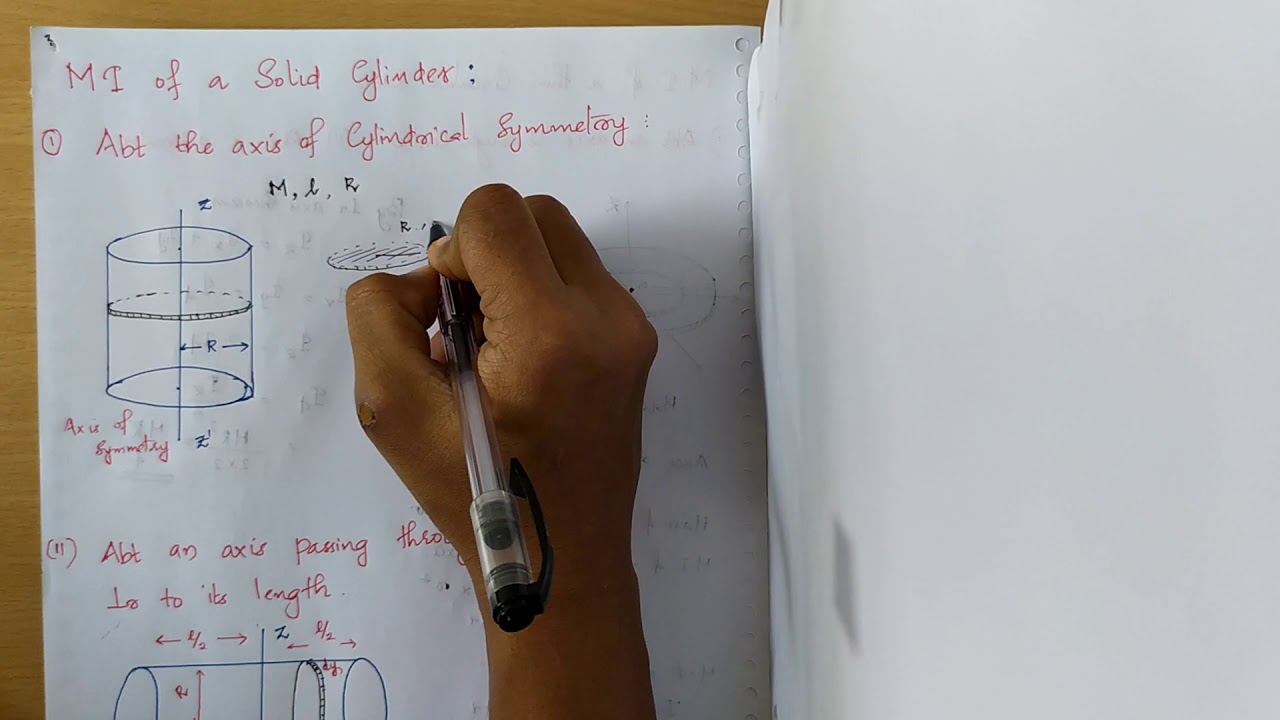 3
M I of a Solid Cylinder :
① Abt the axis of Cylindrical Symmetry :
M, l, R
Z
R,
R
Axis of
Symmetry
Z'
(II) Abt an axis passing
⊥r to its length.
l/2
Z
l/2
dy
R